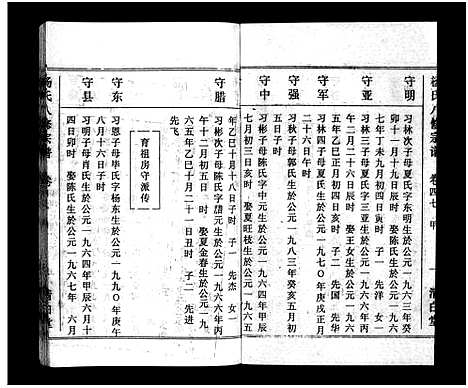 守明
习林次子母夏氏字东明生於公元一九六三年癸
卯十一月十九日辰时
七年丁未九月初三日寅时 子一 先洋
守亚
习林三子母夏氏字三亚生於公元一九六六年丙
午五月初五日 时 娶王女生於公元
守军
习军生於公元一九七〇年庚戌正月
二十六日午时 子一 先华
守强
习秋子母郭氏生於公元一九八三年
守中
习彬子母陈氏字中元生於公元一九六四年甲辰
七月初三日亥时 娶夏旺枝生於公元
年乙巳十月十八日子时 子一 先杰 女一
守腊
习彬次子母陈氏字腊元生於公元一九六六年丙
午十二月初五日 时 娶夏金春生於公元一九
六五年乙巳十月二十一日丑时 子二 先进
先飞
育祖房守派传
守东
习恩子母毕氏字杨东生於公元一九九〇年庚午
八月十六日子时
守县
习明子母肖氏生於公元一九六四年甲辰六月十
四日卯时 娶陈氏生於公元一九六七年 六月
杨氏八修宗谱
清白堂